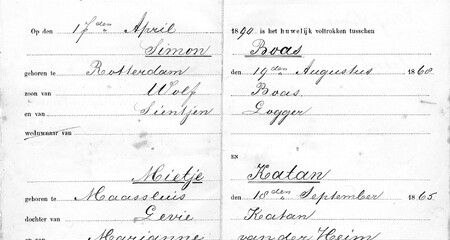 Op den 17den April 1890 is het huwelijk voltrokken tusschen
Simon Boas
geboren te Rotterdam den 19den Augustus 1860
zoon van Wolf Boas
en van Sientjen Logger
weduwnaar van
EN
Mietje Katan
geboren te Maassluis den 18den September 1865
dochter van Levie Katan
en van Marianne van der Heim